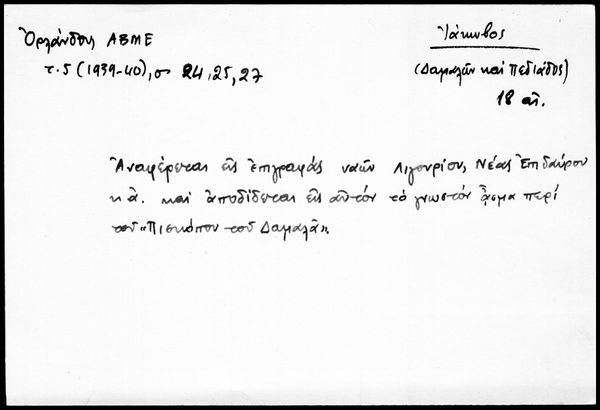 Ὀρλάνδος ΑΒΜΕ
τ. 5 (1939-40), σ 24, 25, 27
Ἰάκωβος
(Δαμαλῶν καὶ Πεδιάδος)
18 αἰ.
Ἀναφέρεται εἰς ἐπιγραφάς ναῶν Λιγουρίου, Νέας Ἐπιδαύρου
κ.ἀ. καὶ ἀποδίδεται εἰς αὐτόν τό γνωστόν ᾆσμα περί
τοῦ «Πισκόπου τοῦ Δαμαλᾶ».